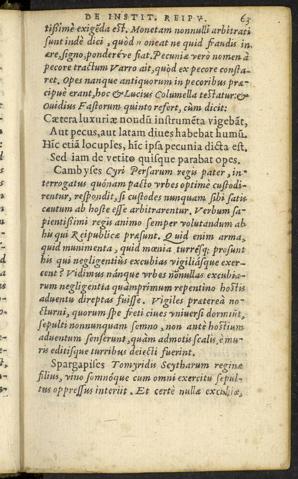 DE INSTIT. REIPV. 63
tißimè exigẽda est. Monetam nonnulli arbitrati
sunt indè dici, quòd moneat ne quid fraudis in
ære, signo, ponderéve fiat. Pecuniæ verò nomen à
pecore tractum Varro ait, quòd ex pecore consta-
ret. Opes nanque antiquorum in pecoribus præ-
cipuè erant, hoc & Lucius Columella testatur. &
Ouidius Fastorum quinto refert, cùm dicit:
Cætera luxuriæ nondũ instrumẽta vigebãt,
Aut pecus, aut latam diues habebat humũ.
Hîc etiã locuples, hîc ipsa pecunia dicta est.
Sed iam de vetito quisque parabat opes.
Cambyses Cyri Persarum regis pater, in-
terrogatus quónam pacto vrbes optimè custodi-
rentur, respondit, si custodes nunquam sibi satis
cautum ab hoste esse arbitrarentur. Verbum sa-
pientißimi regis animo semper volutandum ab
his qui Reipublicæ præsunt. Quid enim arma,
quid munimenta, quid mœnia turrésq; prosunt
his qui negligentiùs excubias vigiliásque exer-
cent? Vidimus nánque vrbes nõnullas excubia-
rum negligentia quàmprimum repentino hostis
aduentu direptas fuisse. Vigiles prætereà no-
cturni, quorum spe freti ciues vniuersi dormiũt,
sepulti nonnunquam somno, non antè hostium
aduentum senserunt, quàm admotis scalis, è mu-
ris editisque turribus deiecti fuerint.
Spargapises Tomyridis Scytharum reginæ
filius, vino somnóque cum omni exercitu sepul-
tus oppressus interiit. Et certè nullæ excubiæ,